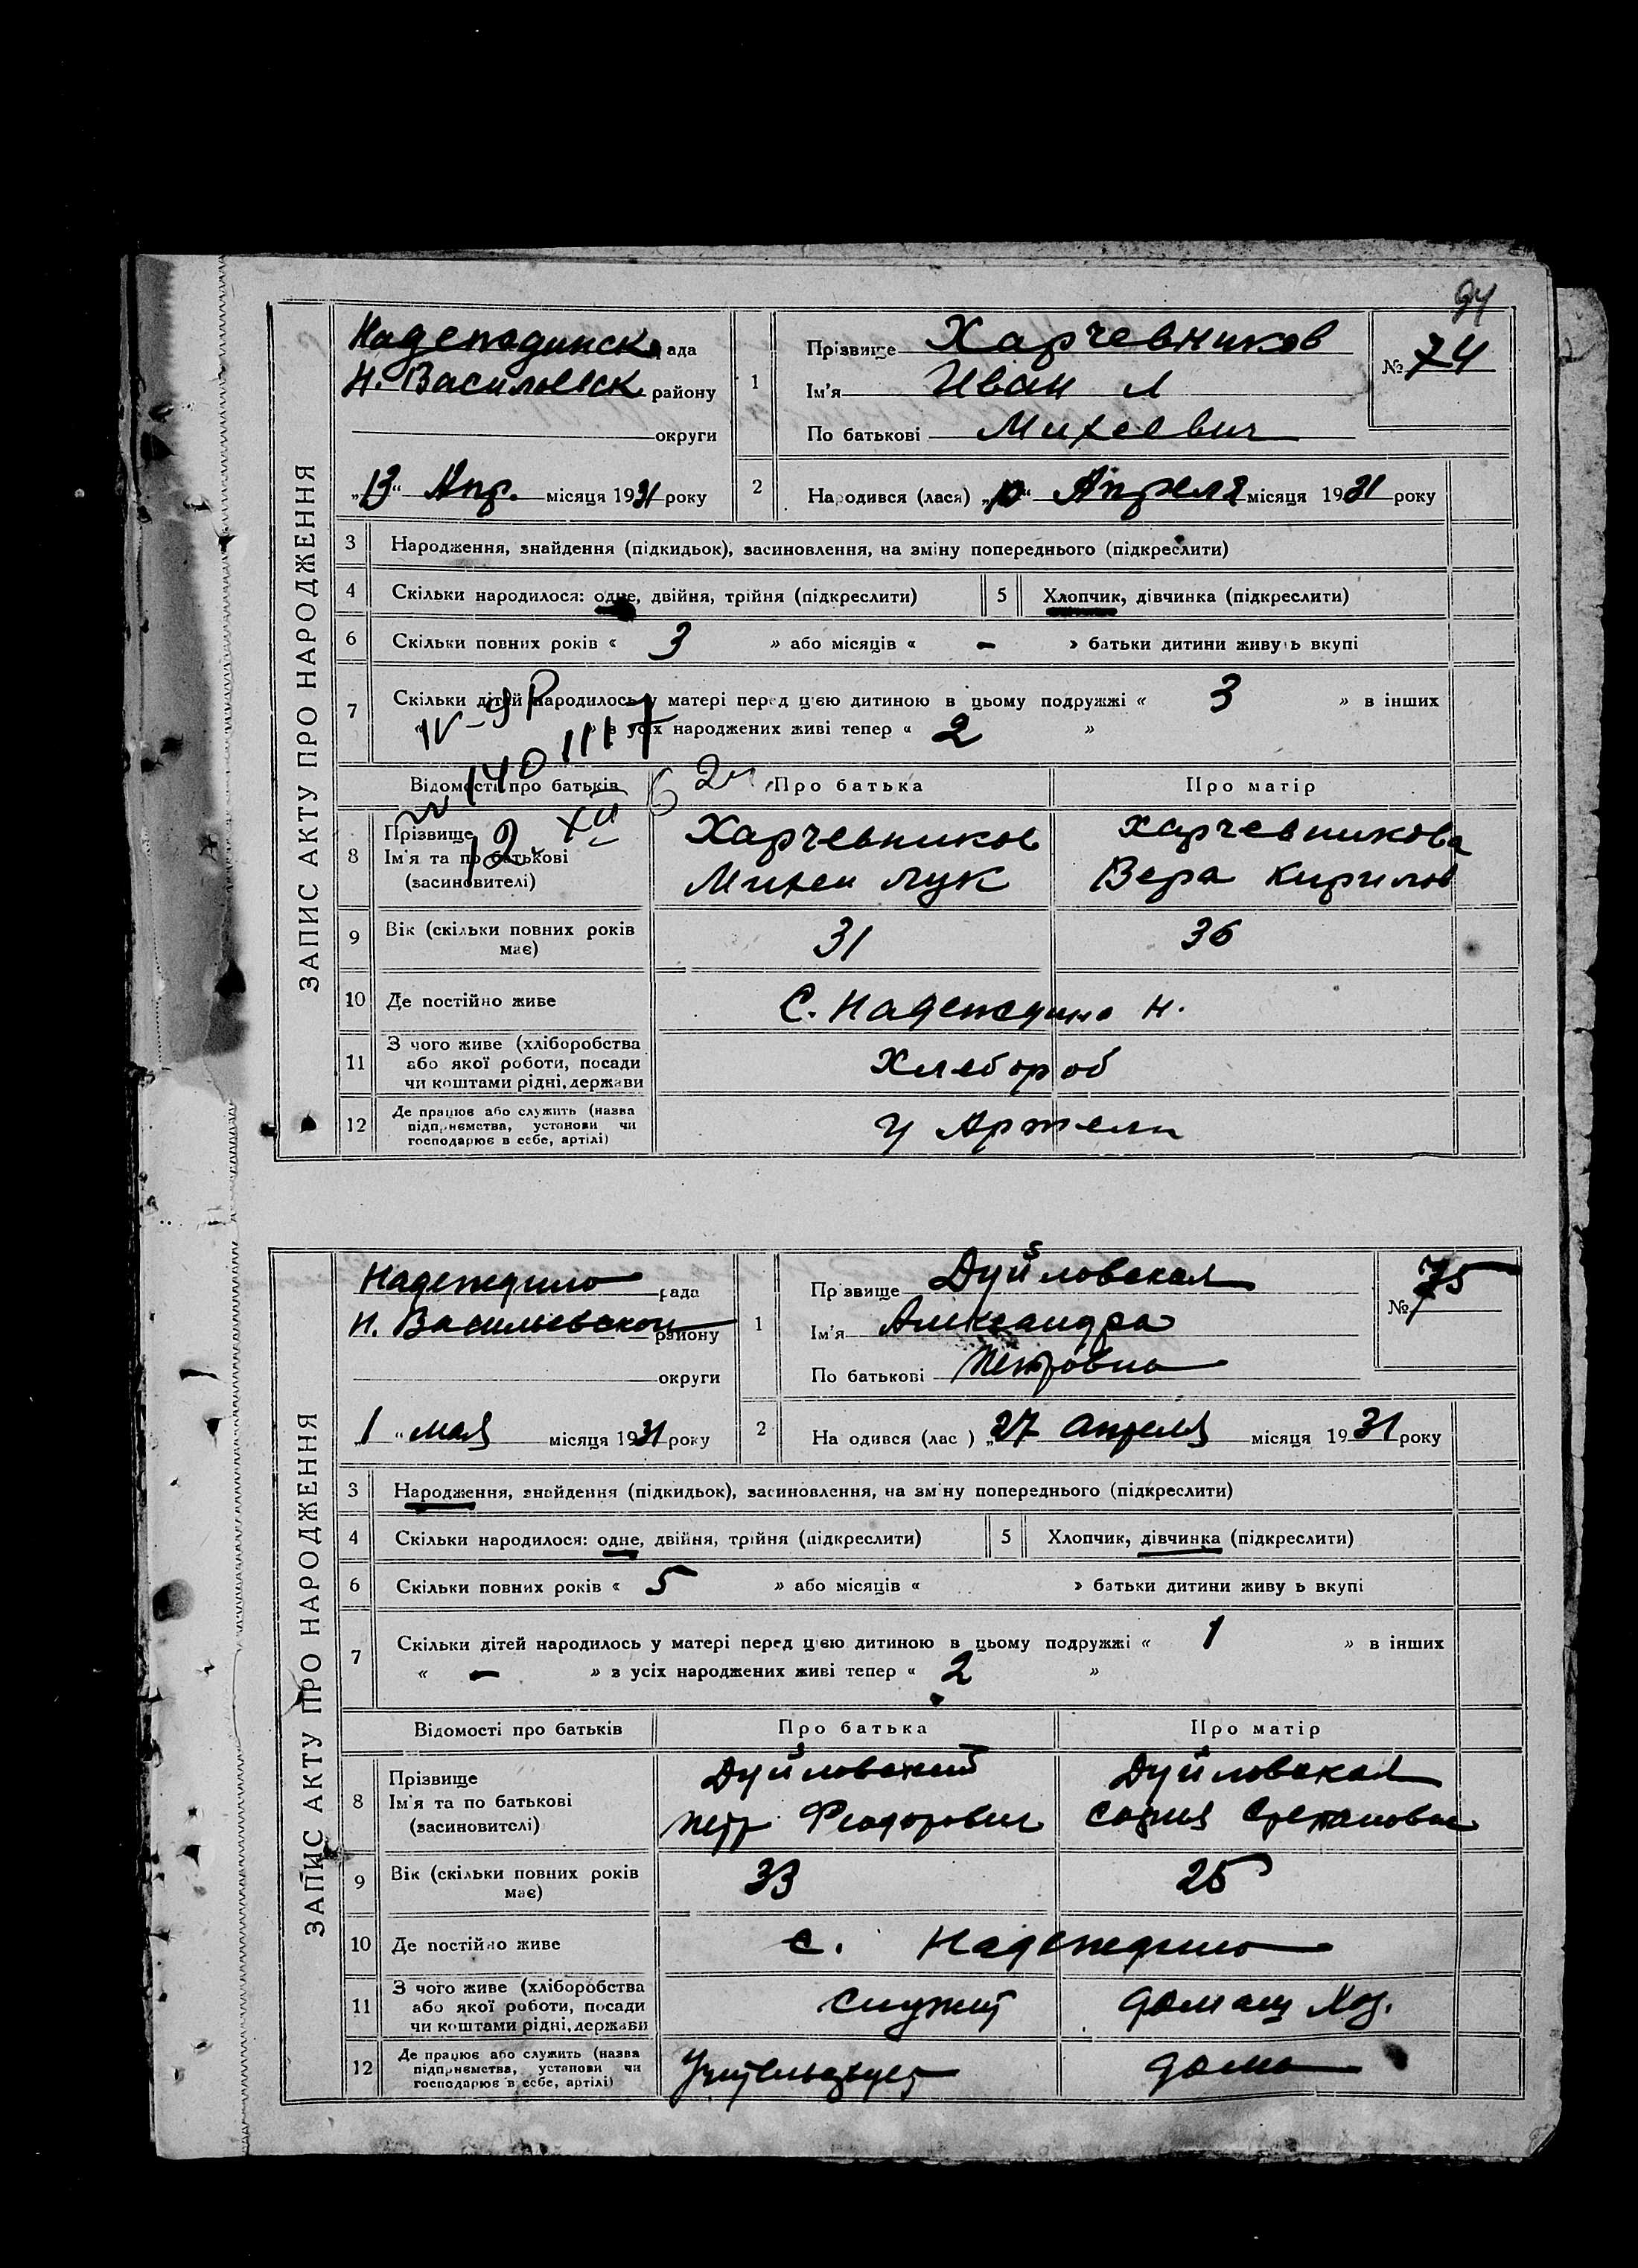 94
ЗАПИС АКТУ ПРО НАРОДЖЕННЯ
Надеждинск рада
Н. Васильевск району
округи
"13" Апр. місяця 1931 року
1
Прізвище Харчевников
Ім'я Иван
По батькові Михеевич
№ 74
2
Народився (лася) „10“ Апреля місяця 1931 року
3 Народження, знайдення (підкидьок), засиновлення, на зміну попереднього (підкреслити)
4 Скільки народилося: одне, двійня, трійня (підкреслити) 5 Хлопчик, дівчинка (підкреслити)
6 Скільки повних років « 3 » або місяців « - » батьки дитини живуть вкупі
7 Скільки дітей народилось у матері перед цією дитиною в цьому подружжі « 3 » в інших
« » з усіх народжених живі тепер « 2 »
Відомості про батьків Про батька Про матір
8 Прізвище
Ім'я та по батькові
(засновителі)
Харчевников
Михеи Лук
Харчевникова
Вера Кирилов
9 Вік (скільки повних років має) 31 36
10 Де постійно живе С. Надеждино Н.
11 З чого живе (хліборобства
або якої роботи, посади
чи коштами рідні, держави
Хлебороб
12 Де працює або служить (назва
підприємства, установи чи
господарює в себе, артілі)
у Артели
ЗАПИС АКТУ ПРО НАРОДЖЕННЯ
Надеждино рада
Н. Васильевскои району
округи
„1“ мая місяця 1931 року
1
Прізвище Дуйловская
Ім'я Александра
По батькові Петровна
№ 75
2
На одився (лас ) „27 апреля місяця 1931 року
3 Народження, знайдення (підкидьок), засиновлення, на зміну попереднього (підкреслити)
4 Скільки народилося: одне, двійня, трійня (підкреслити) 5 Хлопчик, дівчинка (підкреслити)
6 Скільки повних років « 5 » або місяців « » батьки дитини живу ь вкупі
7 Скільки дітей народилось у матері перед цією дитиною в цьому подружжі « 1 » в інших
« - » з усіх народжених живі тепер « 2 »
Відомості про батьків Про батька Про матір
8 Прізвище
Ім'я та по батькові
(засиновителі)
Дуйловский
Петр Феодорович
Дуйловская
София Степановна
9 Вік (скільки повних років має) 33 25
10 Де постійно живе с. Надеждино
11 З чого живе (хліборобства
або якої роботи, посади
чи коштами рідні, держави
служит домаш хоз.
12 Де працює або служить (назва
підприємства, установи чи
господарює в себе, артілі)
дома